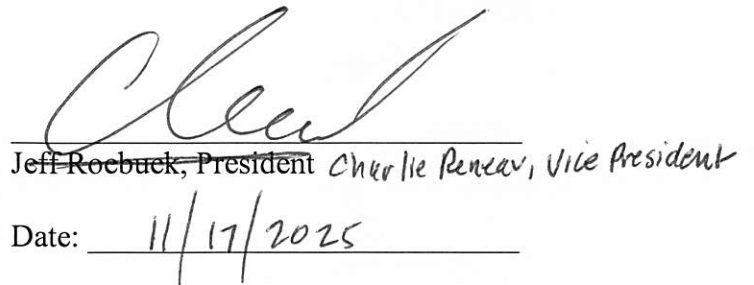 Jeff Roebuck, President Charlie Reneav, Vice President
Date: 11/17/2025